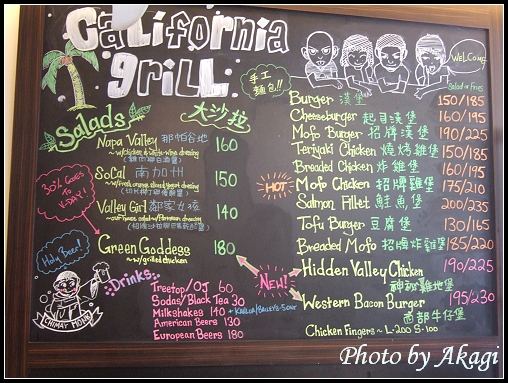 California
grill
手工
麵包!!
WELCOME
Salads 大沙拉
Napa Valley 那帕谷地 160
~w/chicken & white-wine dressing
SoCal 南加州 150
~w/fresh orange slices & yogurt dressing
Valley Girl 鄰家女孩 140
~our house salad w/Parmesan dressing
Green Goddess 180
~w/grilled chicken
30% GOES TO
Holy Beer!
CHIMAY MONK
Drinks
Treetop/OJ 60
Sodas/Black Tea 30
Milkshakes 140 +KAHLUA/BAILEY'S-50NT
American Beers 130
European Beers 180
Salad or Fries
Burger 漢堡 150/185
Cheeseburger 起司漢堡 160/195
Mofo Burger 招牌漢堡 190/225
Teriyaki Chicken 燒烤雞堡 150/185
Breaded Chicken 炸雞堡 160/195
HOT
Mofo Chicken 招牌雞堡 175/210
Salmon Fillet 鮭魚堡 200/235
Tofu Burger 豆腐堡 130/165
Breaded Mofo 招牌炸雞堡 185/220
NEW!
Hidden Valley Chicken 190/225
神秘雞地堡
Western Bacon Burger 195/230
西部牛仔堡
Chicken Fingers ~ L-200 S-100
Photo by Akagi